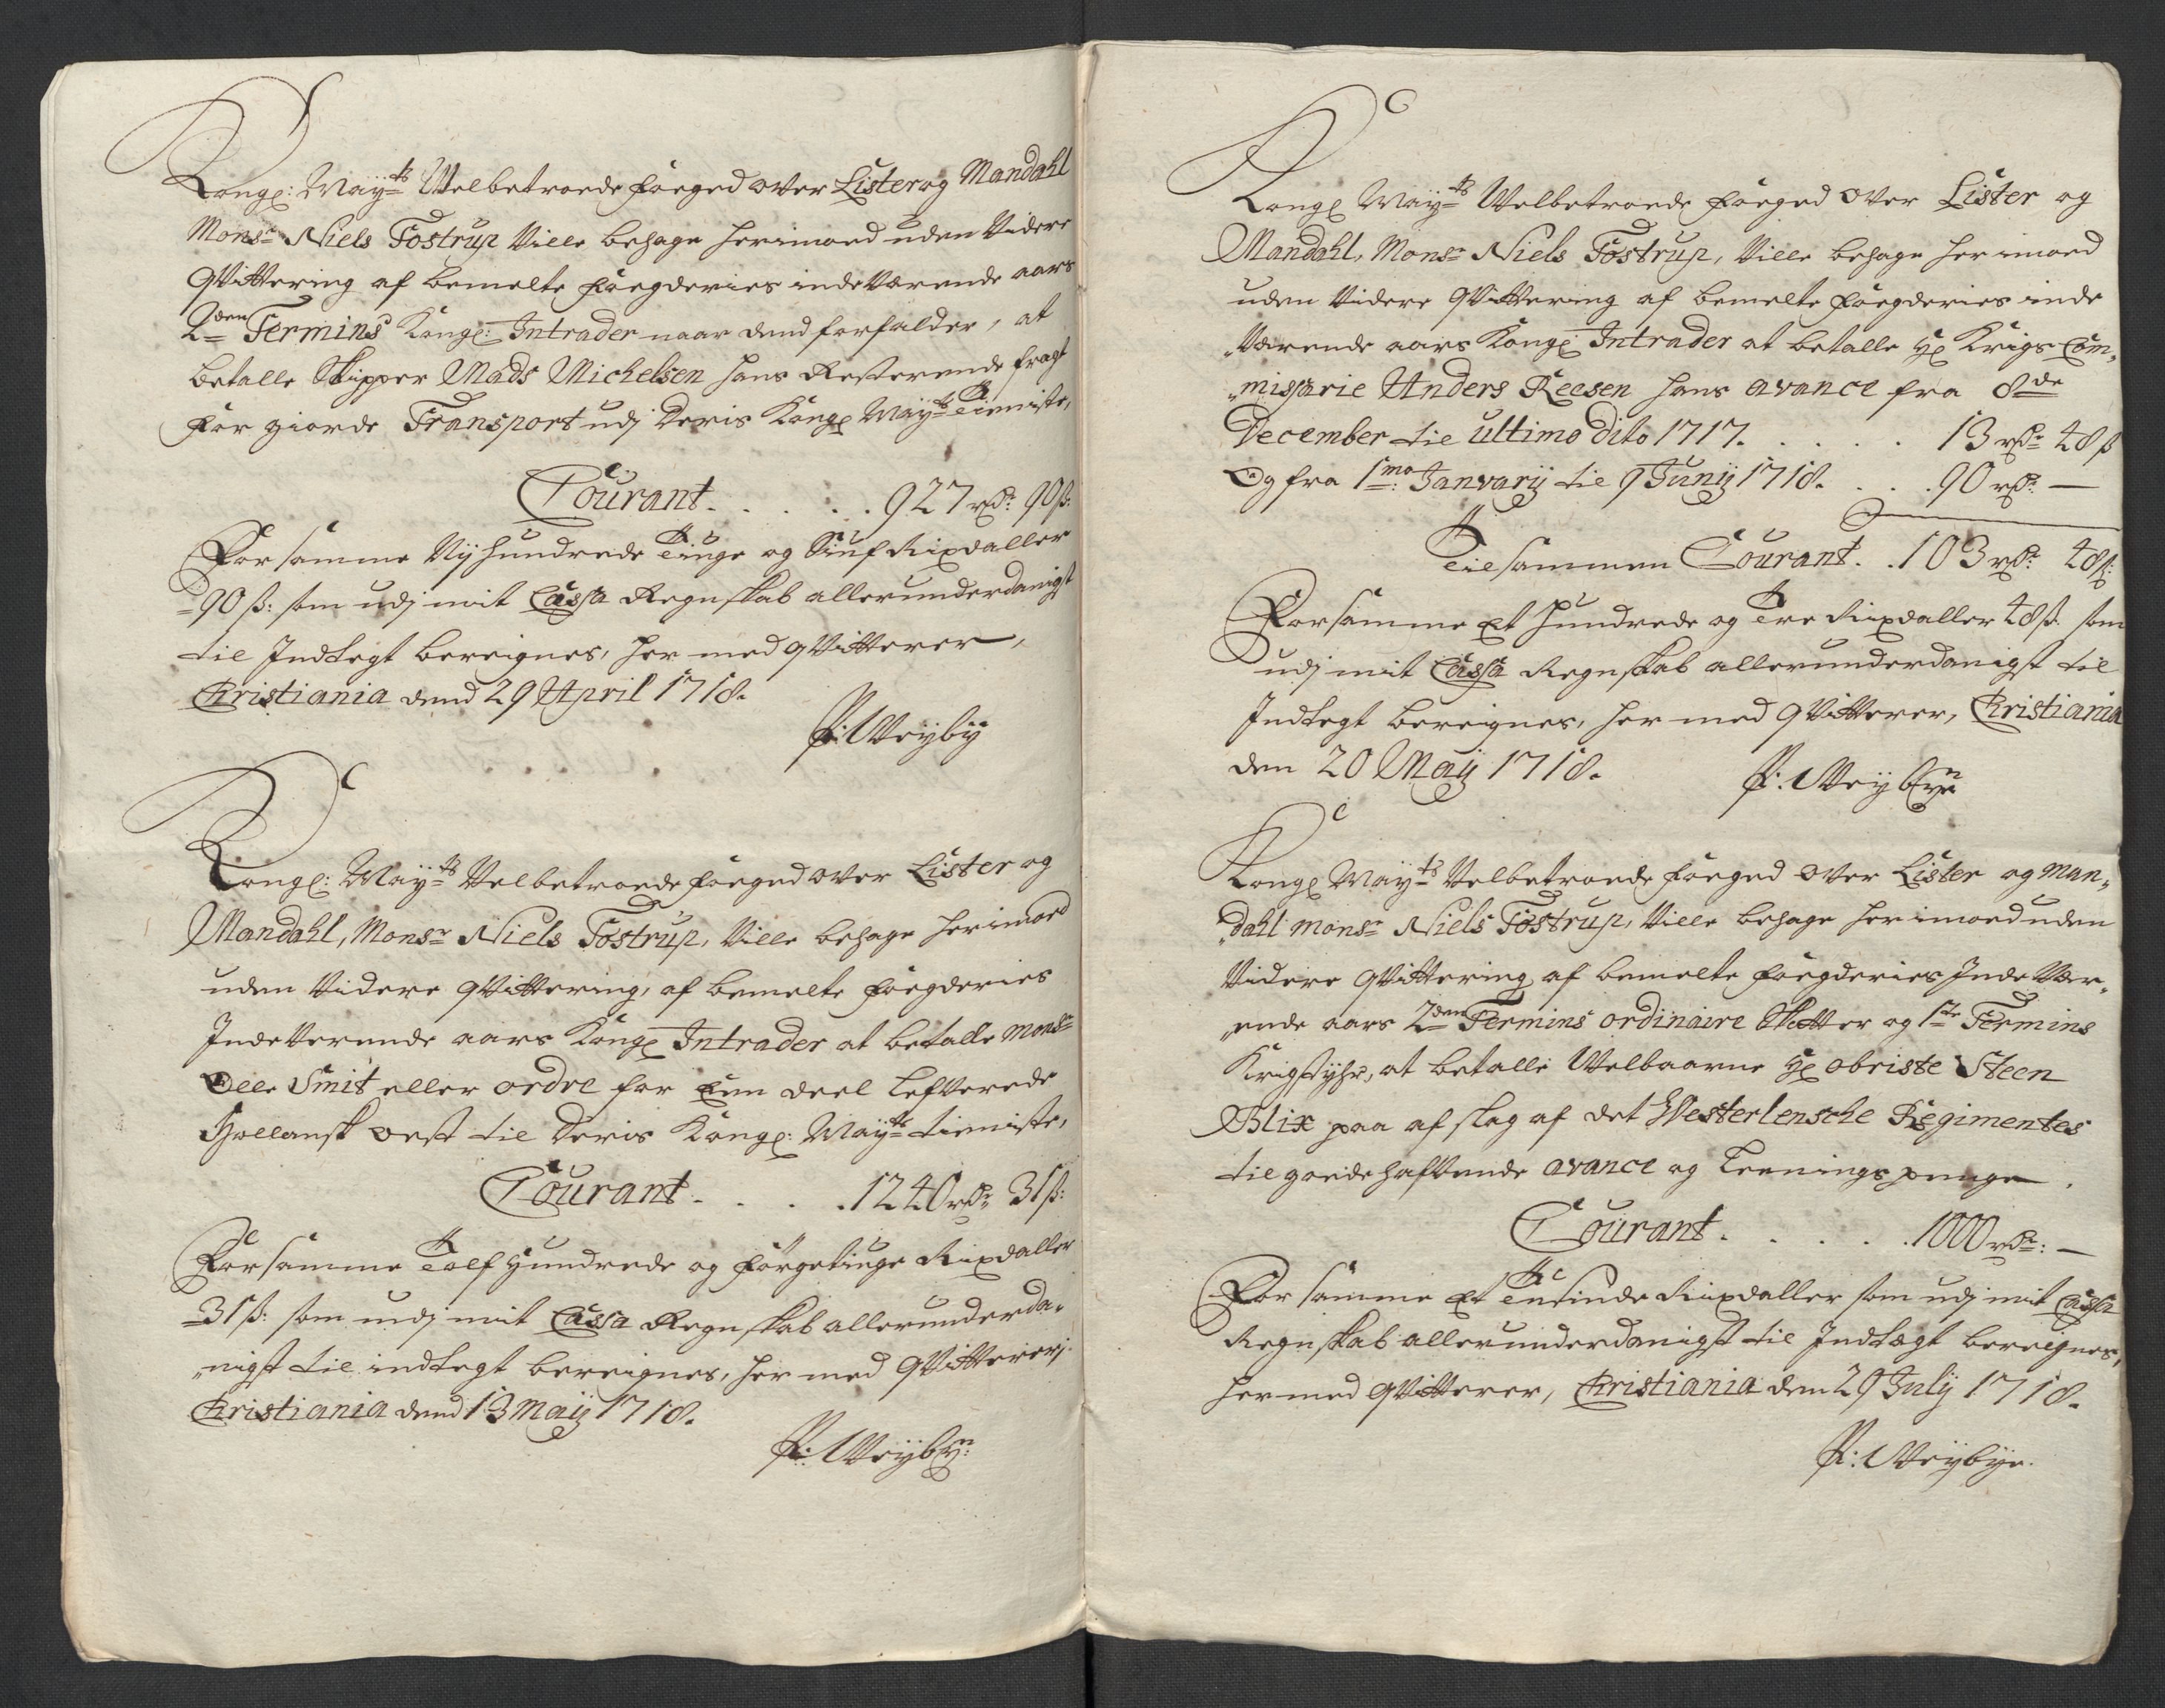 Kongl: Maÿ:ts Velbetroede foeged over Lister og Mandahl
Mons:r Niels Tostrup Ville behage herimoed uden Videre
qVittering af bemelte foegderies indeværende aars
2:den Termins Kongl: Intrader naar dend forfalder, at
betalle Skipper Mads Michelsen hans Resterende fragt
for giorde Transport udj Deris Kongl May:ts Tieniste,
Courant . . . . . 927 rdr: 90 ß:
For samme Nÿ hundrede Tiuge og Siuf Rixdaller
90 ß: som udj mit Cassa Regnskab allerunderdanigst
til Indtegt bereignes, her med qVitterer,
Christiania dend 29 April 1718.
P: Weyby
Kongl: Maÿ:ts Velbetroede foeged over Lister og
Mandahl, Mons:r Niels Tostrup, Ville behage herimoed
uden Videre qVittering, af bemelte foegderies
Indeverende aars Kongl Intrader at betalle Mons:r
Olle Smit eller ordre for Een deel lefverede
Hollansk oest til Deris Kongl: Maÿ:ts tieniste,
Courant . . . . 1240 rdr: 31 ß:
For samme Tolf Hundrede og förgetiuge Rixdaller
31 ß: som udj mit Cassa Regnskab allerunderda„
„nigst til indtegt bereignes, her med qVitterer,
Christiania dend 13 Maij 1718.
P: Weyby:
Kongl Maÿ:ts Velbetroede foeged over Lister og
Mandahl, Mons:r Niels Tostrup, Ville behage her imoed
uden Videre qVittering af bemelte foegderies inde
„værende aars Kongl Intrader at betalle Hl Krigs Com„
„missarie Anders Reesen hans avance fra 8:de
December til ultimo dito 1717. . . . . . 13 rdr: 48 ß
Og fra 1:mo Janvarij til 9 Junij 1718. . . . 90 rdr: —
Tilsammen Courant . . 103 rdr: 48 ß:
For samme Et hundrede og Tre Rixdaller 48 ß. som
udj mit Cassa Regnskab allerunderdanigst til
Indtegt bereignes, her med qVitterer, Christiania
den 20 Maij 1718.
P: Weybye
Kongl Maÿ:ts Velbetroede foeged over Lister og Man„
„dahl Mons:r Niels Tostrup, Ville behage her imoed uden
Videre qVittering af bemelte foegderies Inde Vær„
„ende aars 2:den Termins ordinaire Skatter og 1:ste Termins
Krigstyhr, at betalle Velbaarne Hl obriste Steen
Blix paa afslag af det Westerlensche Regimentes
til goede hafvende avance og Leenings penge.
Courant . . . . . 1000 rdr: —
For samme Et Tusinde Rixdaller som udj mit Cassa
Regnskab allerunderdanigst til Indtægt bereignes,
her med qVitterer, Christiania den 29 July 1718.
P: Weybye.